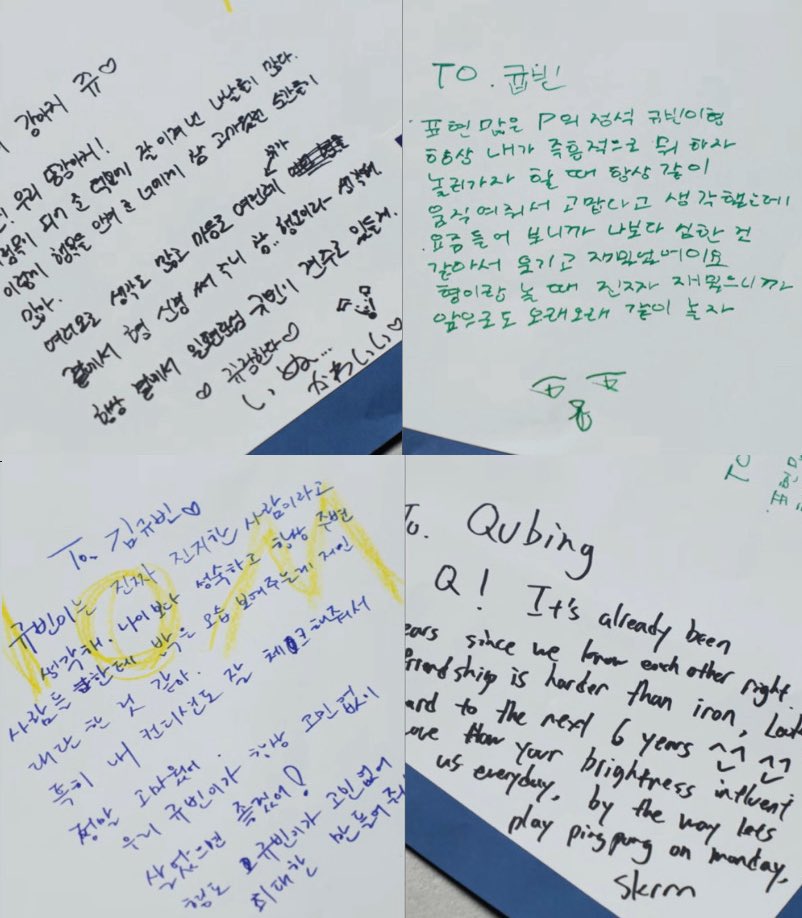 강아지 규♡
우리 똥강아지!
되기 초 덕분에 잘 이겨 낸 나날들이 많다.
이렇게 행복을 안겨 준 너에게 항상 고마웠던 순간들이
많아.
여러모로 생각도 많고 마음도 여린데
곁에서 형 신경 써 주니 참.. 형이라 생각해.
항상 곁에서 일 규빈이 전부로 있을게.
♡ 규정한다♡
かわいい♡
TO. 규빈
표현 많은 P의 정석 규빈이형
항상 내가 즉흥적으로 뭐 하자
놀러가자 할 때 항상 같이
움직여줘서 고맙다고 생각했는데
요즘들어 보니까 나보다 심한 것
같아서 웃기고 재밌었어이요
형이랑 놀 때 진짜 재밌으니까
앞으로도 오래오래 같이 놀자
To. 김규빈♡
규빈이는 진짜 진지한 사람이라고
생각해. 나이보다 성숙하고 항상 주변
사람들한테 밝은 모습 보여주는게
대단한 것 같아.
특히 내 컨디션도 잘 체크해줘서
정말 고마웠어. 항상 고민 없이
우리 규빈이가
살았으면 좋겠어!
형도 규빈이가 고민 없어
최대한 만들어 줘
MOM
To. Qubing
Q! It's already been
ears since we know each other right.
friendship is harder than iron, Look
ard to the next 6 years ^^ ^^
ove How your brightness influent
us everyday, by the way lets
play pingpung on monday,
skrrn
TO
표현